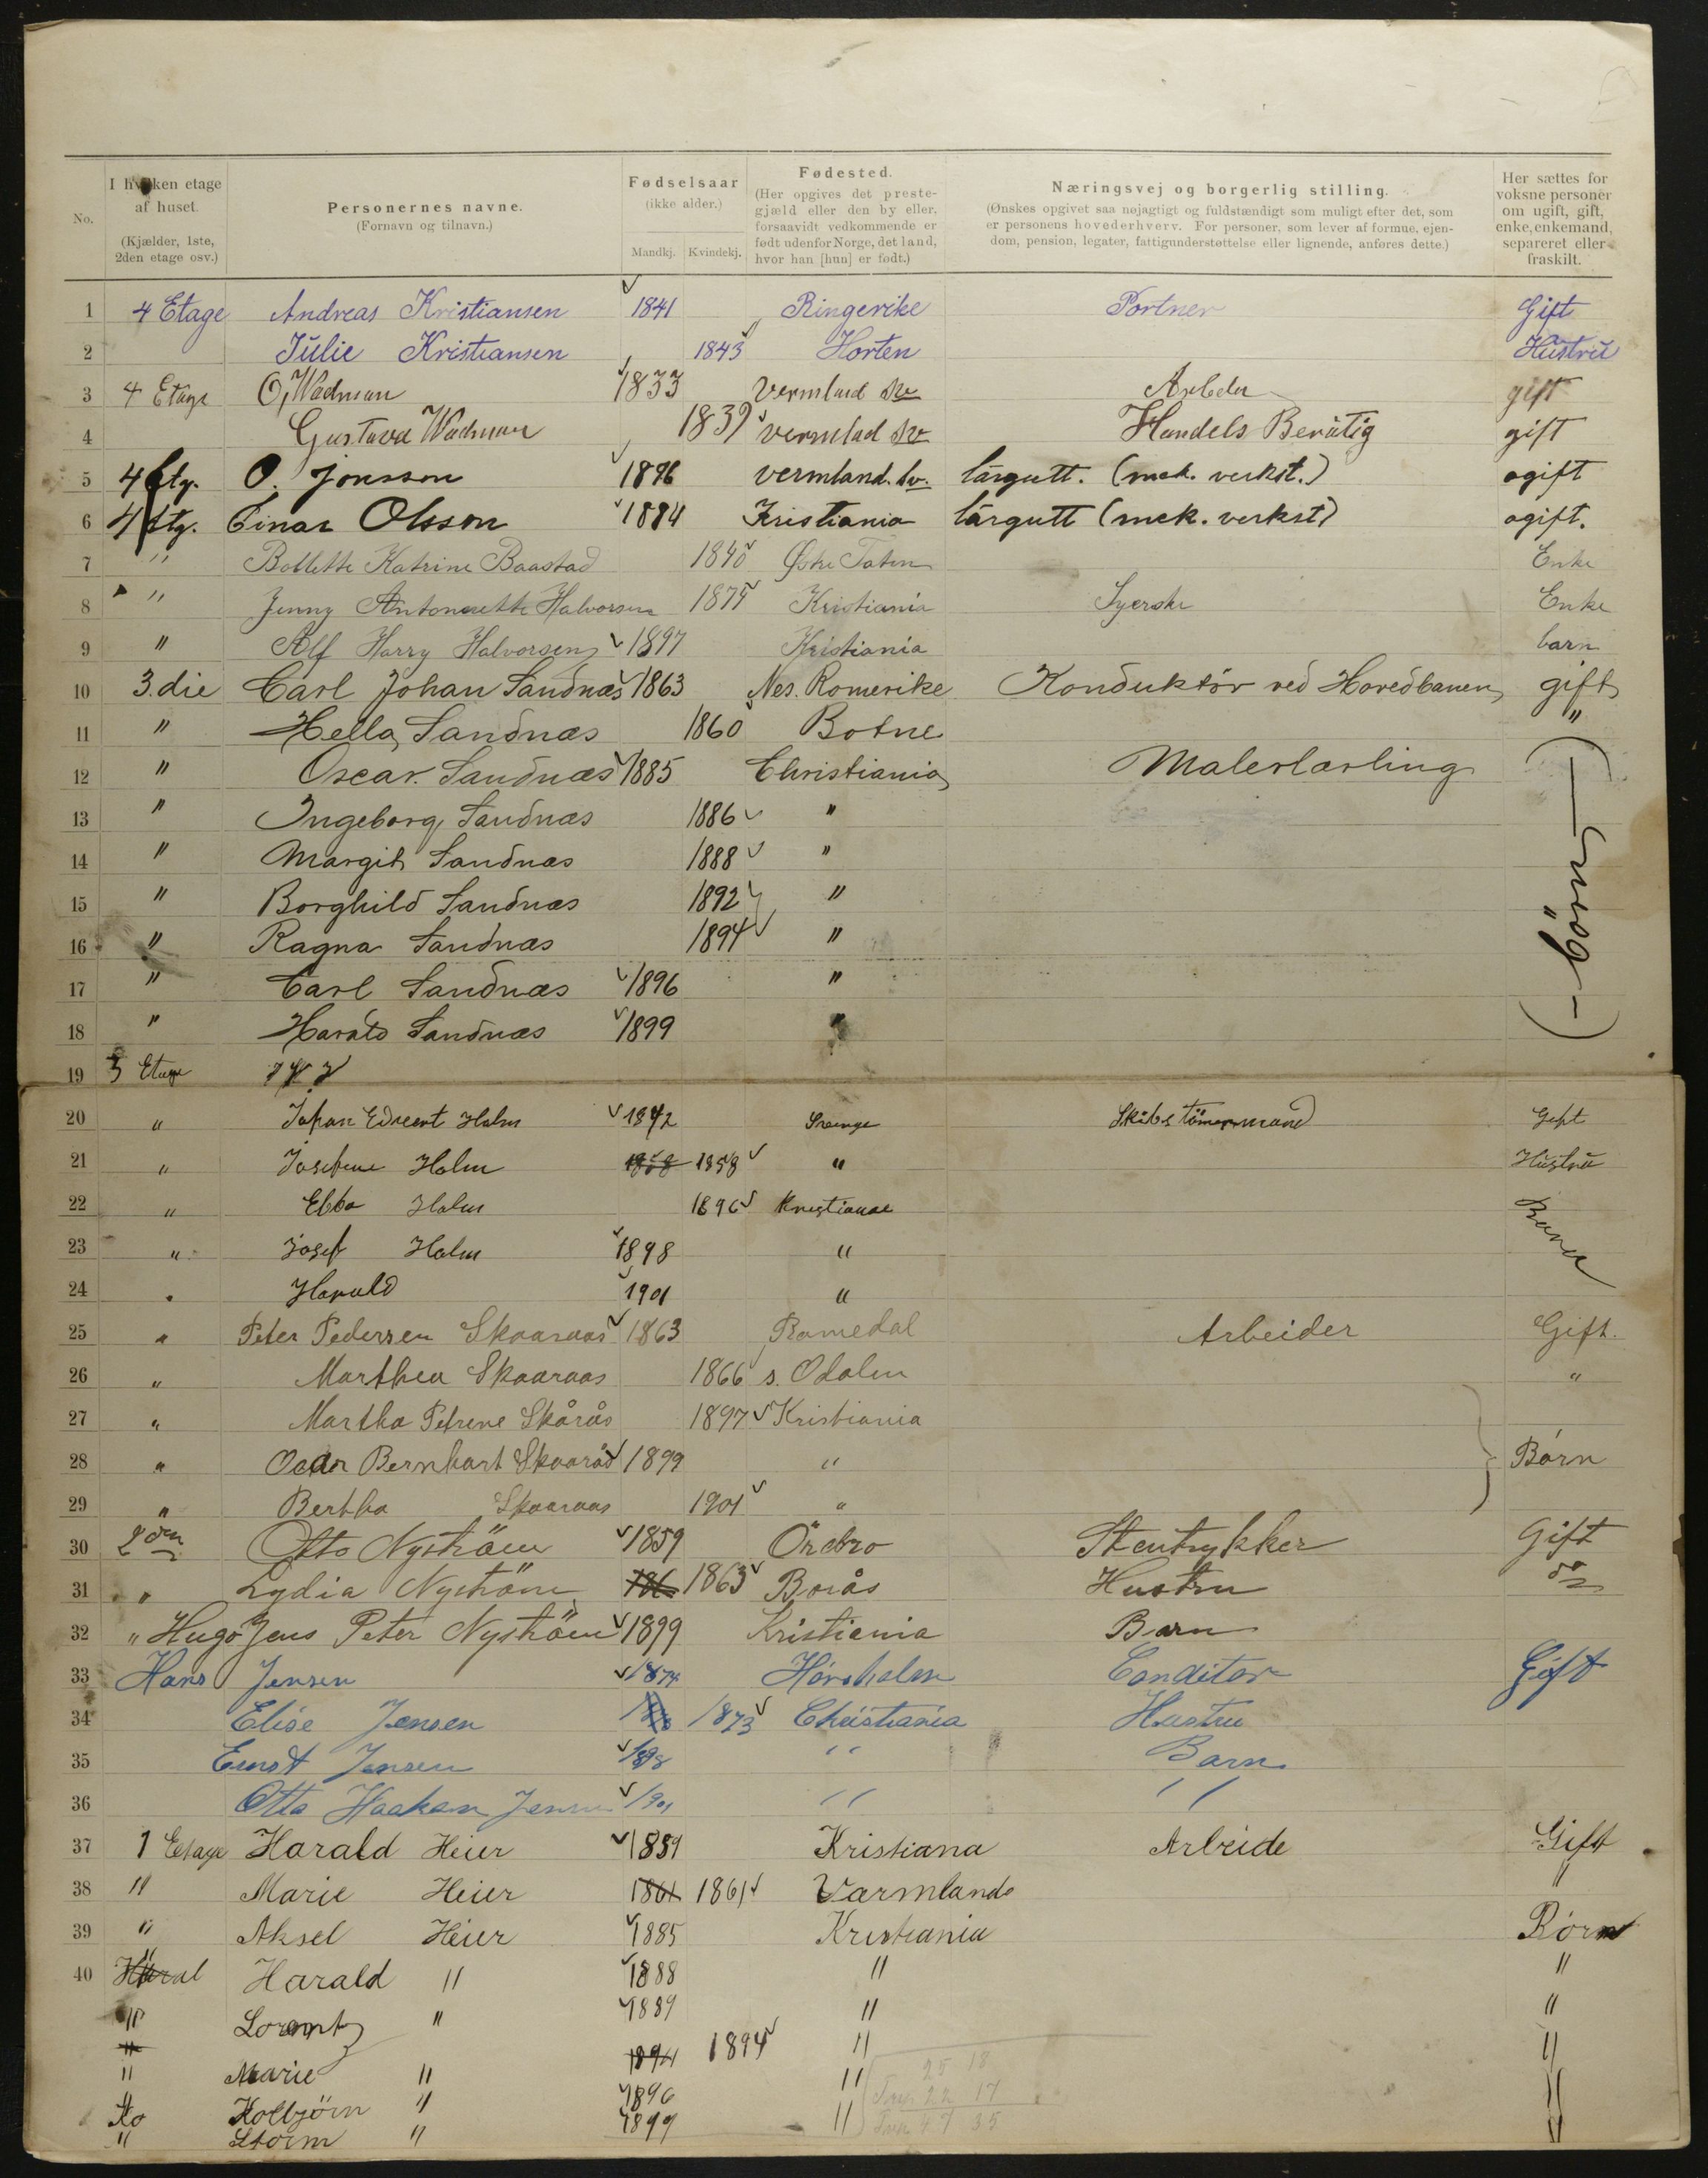 No.
I hvilken etage af huset. (Kjælder, 1ste, 2den etage osv.)
Personernes navne. (Fornavn og tilnavn.)
Fødselsaar (ikke alder.) Mandkj. Kvindekj.
Fødested. (Her opgives det prestegjæld eller den by eller, forsaavidt vedkommende er født udenfor Norge, det land, hvor han [hun] er født.)
Næringsvej og borgerlig stilling. (Ønskes opgivet saa nøjagtigt og fuldstændigt som muligt efter det, som er personens hovederhverv. For personer, som lever af formue, ejendom, pension, legater, fattigunderstøttelse eller lignende, anføres dette.)
Her sættes for voksne personer om ugift, gift, enke, enkemand, separeret eller fraskilt.
1 4 Etage Andreas Kristiansen 1841 Ringerike Portner Gift
2 Julie Kristiansen 1843 Horten Hustru
3 4 Etage O, Wadman 1833 Vermland Sv. gift
4 Gustava Wadman 1839 vermlad Sv Handels Berätig gift
5 4 Etg. O. Jonsson 1896 vermland. Sv. lärgutt. (mek. verkst.) ogift
6 4 Etg. Einar Olsson 1884 Kristiania lärgutt (mek. verkst) ogift.
7 " Bollette Katrine Baastad 1840 Østre Toten Enke
8 " Jenny Antonette Halvorsen 1875 Kristiania Syerske Enke
9 " Alf Harry Halvorsen 1897 Kristiania barn
10 3.die Carl Johan Sandnæs 1863 Nes. Romerike Konduktör ved Hovedbanen gift
11 " Hella Sandnæs 1860 Botne "
12 " Oscar. Sandnæs 1885 Christiania Malerlærling
13 " Ingeborg Sandnæs 1886 "
14 " Margit Sandnæs 1888 "
15 " Borghild Sandnæs 1892 " börn
16 " Ragna Sandnæs 1894 "
17 " Carl Sandnæs 1896 "
18 " Harald Sandnæs 1899 "
19 3 Etage
20 " Johan Edvert Holm 1842 Skibstömermand Gift
21 " Josefine Holm 1858 1858 " Hustru
22 " Ebba Holm 1896 Kristiania
23 " Josef Holm 1898 "
24 " Harald 1901 "
25 " Peter Pedersen Skaaraas 1863 Romedal Arbeider Gift.
26 " Marthea Skaaraas 1866 s. Odalen "
27 " Martha Petrene Skårås 1897 Kristiania
28 " Oscar Bernhart Skaarås 1899 " Børn
29 " Bertha Skaaraas 1901 "
30 2den Otto Nyström 1859 Örebro Stentrykker Gift
31 " Lydia Nyström 186 1863 Borås Hustru do
32 " Hugo Jens Peter Nyström 1899 Kristiania Barn
33 Hans Jensen 1874 Hörsholm Conditor Gift
34 Elise Jensen 1873 Christiania Hustru
35 Ernst Jensen 1898 " Barn
36 Otto Haakon Jensen 1901 " "
37 1 Etage Harald Heier 1859 Kristiana Arbeide Gift
38 " Marie Heier 1861 1861 Varmlands "
39 " Aksel Heier 1885 Kristiania Børn
40 Haral Harald " 1888 " "
" Lorentz " 1889 " "
" Marie " 1894 1894 " "
Kolbjörn " 1896 "
" Storm " 1899 "
25 18
22 17
47 35